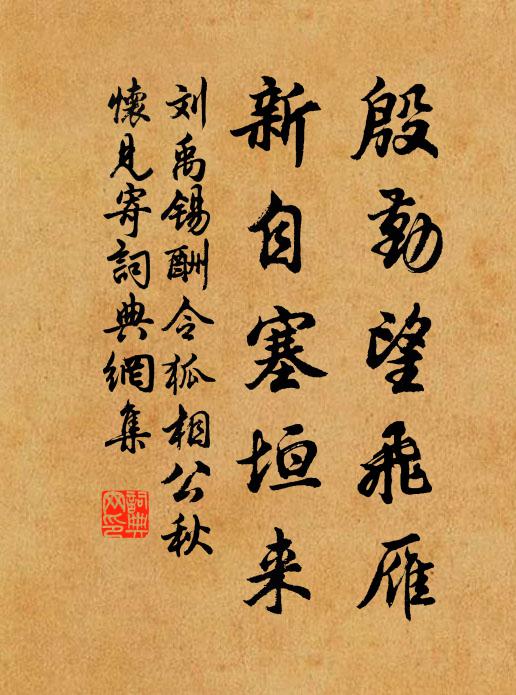 殷勤望飛雁
新自塞垣来
刘禹锡酬令狐相公秋
懷見寄詞典網集
詞典
网印